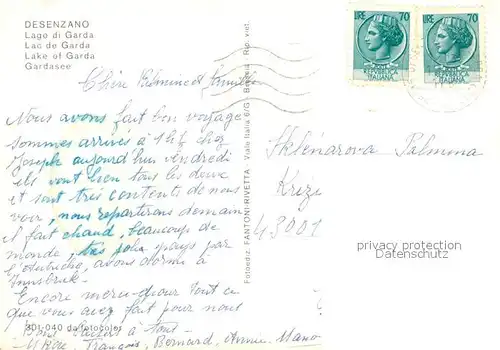 DESENZANO
Lago di Garda
Lac de Garda
Lake of Garda
Gardasee
LIRE 70
LIRE 70
REPUBBLICA ITALIANA
REPUBBLICA ITALIANA
Chère Palmina et famille
Nous avons fait bon voyage
sommes arrivés à 16h chez
Joseph aujourd'hui vendredi
ils vont bien tous les deux
et sont très contents de nous
voir, nous repartirons demain
il fait chaud, beaucoup de
monde, très jolis pays par
l'Autriche, avons dormi à
Innsbruk.
Encore merci pour tout ce
que vous avez fait pour nous
Bons baisers à tous
François, Bernard, Annie,
301-040 da fotocolor
Fotoediz. FANTONI-RIVETTA - Viale Italia 6/G - Brescia - Rip. viet.
Sklenarova Palmina
Krizi
43001
privacy protection
Datenschutz